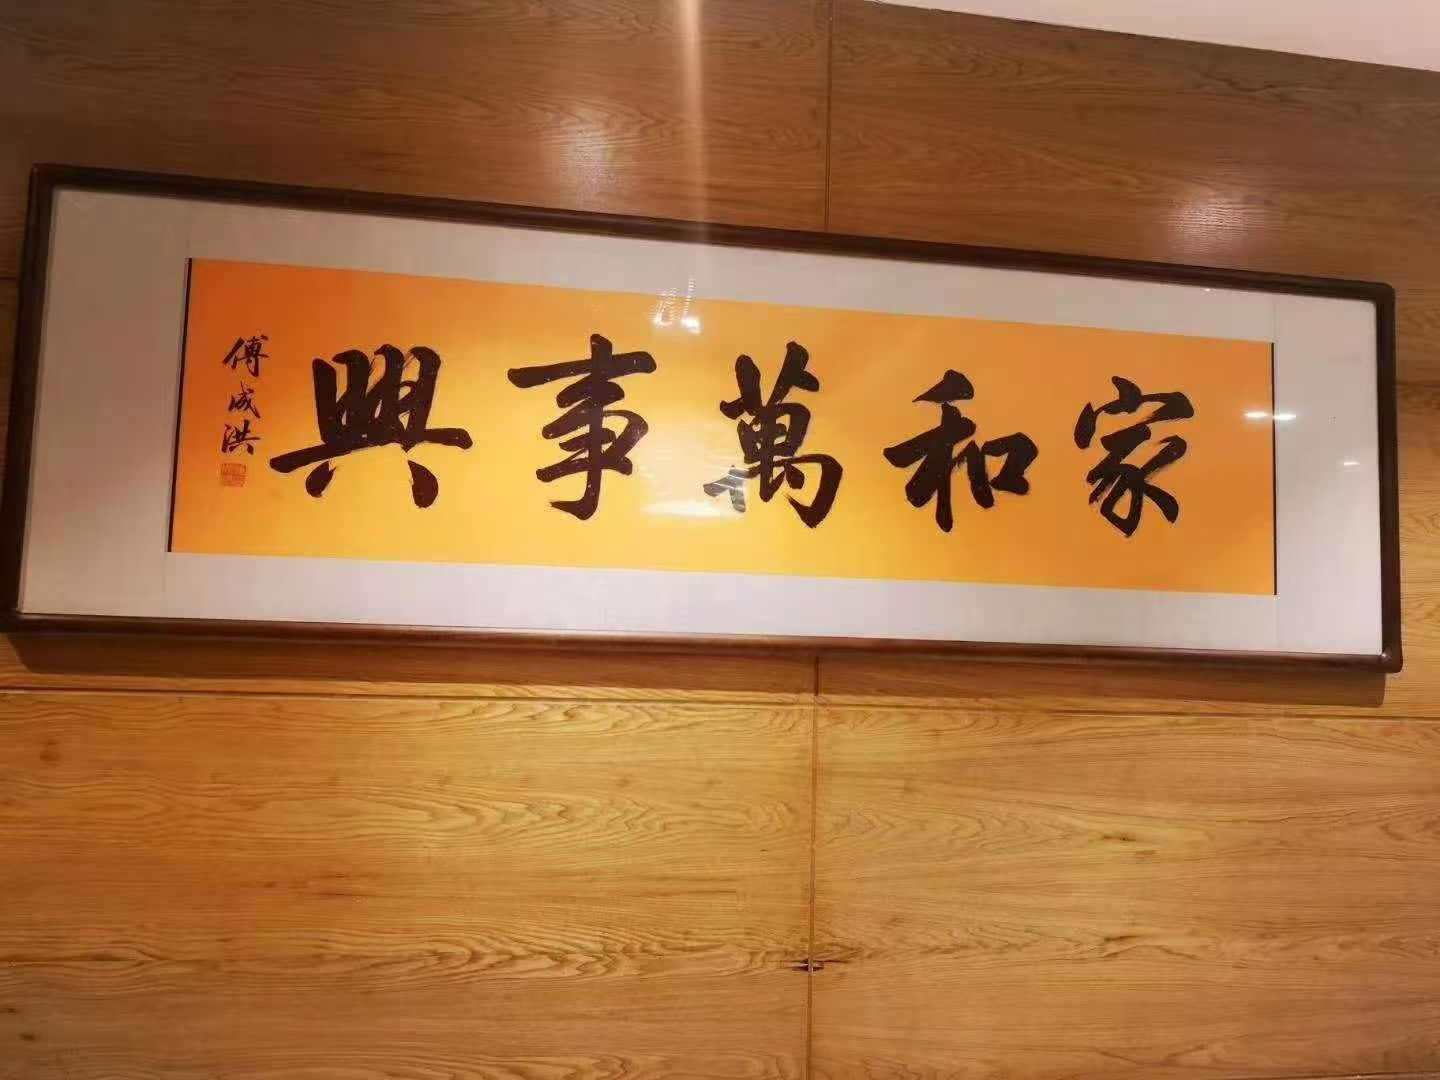 家和萬事興
傅成洪